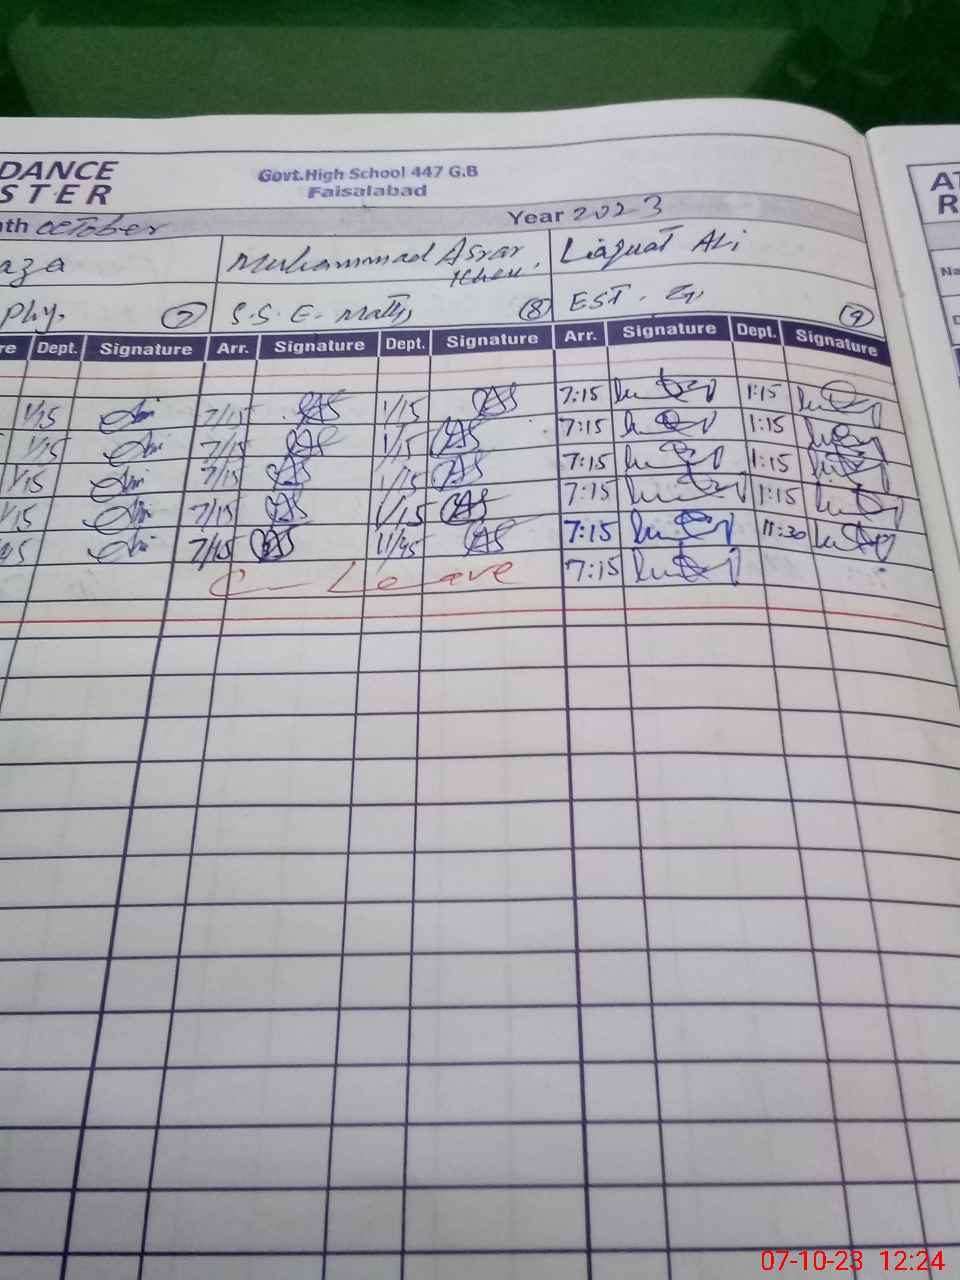 DANCE
STER
Govt.High School 447 G.B
Faisalabad
nth October Year 2023
aza Muhammad Asrar Khan. Liaquat Ali
Phy. 7 S.S.E. Math 8 EST. 9
re Dept. Signature Arr. Signature Dept. Signature Arr. Signature Dept. Signature
1/15 7/15 1/15 7:15 1:15
1/15 7/15 1/15 7:15 1:15
1/15 7/15 1/15 7:15 1:15
1/15 7/15 1/15 7:15 1:15
7/45 11/45 7:15 11:30
C-Leave 7:15
AT
R
Na
D
07-10-23 12:24